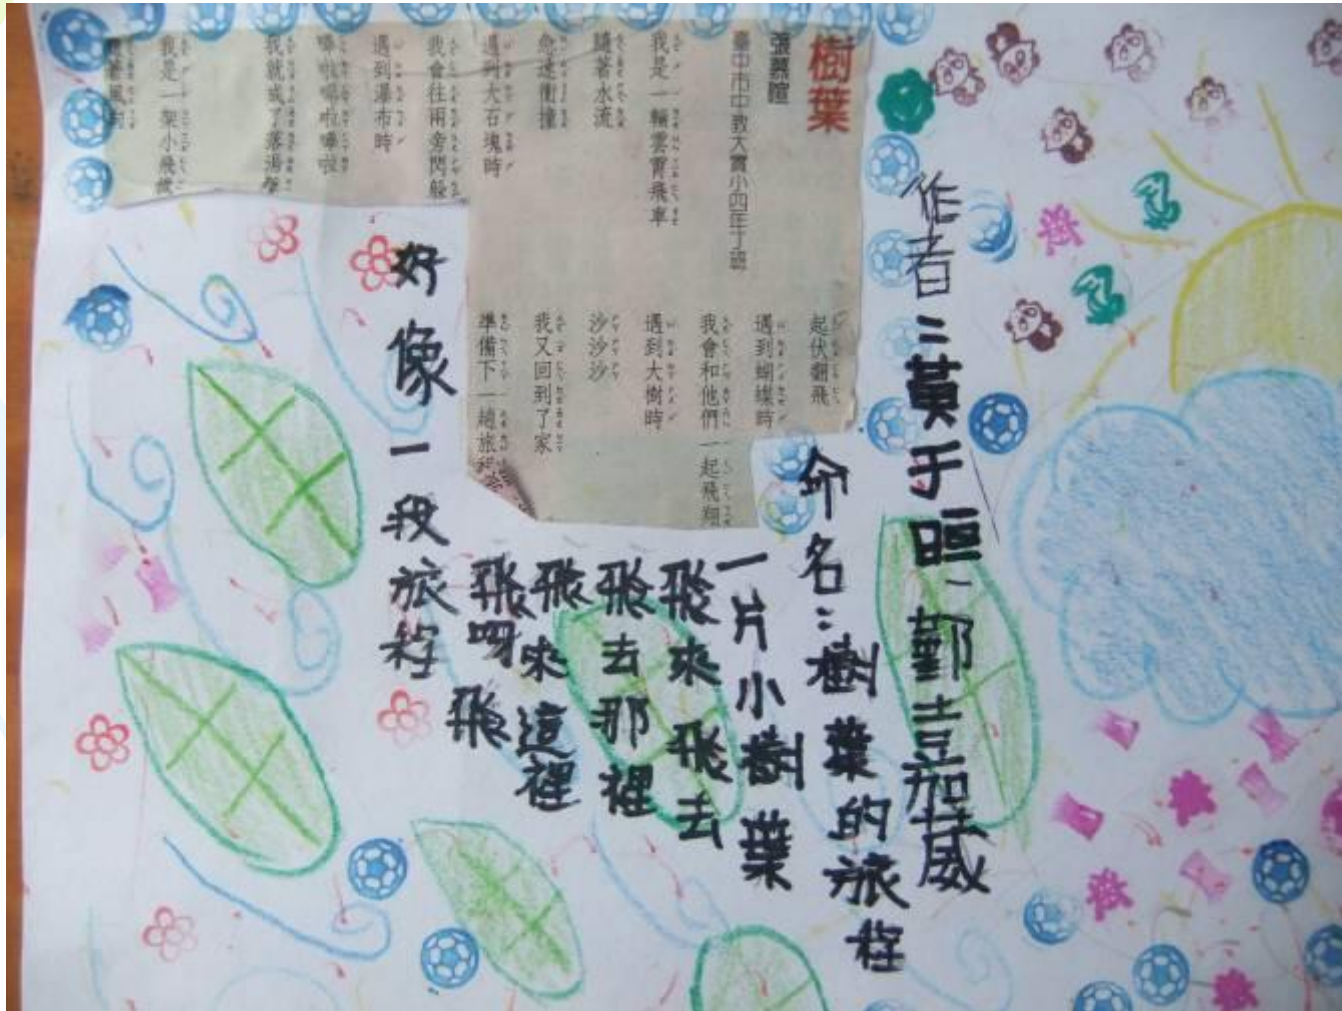 作者:黃于晅、鄞嘉葳
樹葉
張慕暄
臺中市中教大實小四年丁班
我是一輛雲霄飛車
隨著水流
急速衝撞
遇到大石塊時
我會往兩旁閃躲
遇到瀑布時
嘩啦嘩啦嘩啦
我就成了落湯雞
我是一架小飛機
隨著風向
起伏翻飛
遇到蝴蝶時
我會和他們一起飛翔
遇到大樹時
沙沙沙
我又回到了家
準備下一趟旅程
命名:樹葉的旅程
一片小樹葉
飛來飛去
飛去那裡
飛來這裡
飛呀飛
好像一段旅程